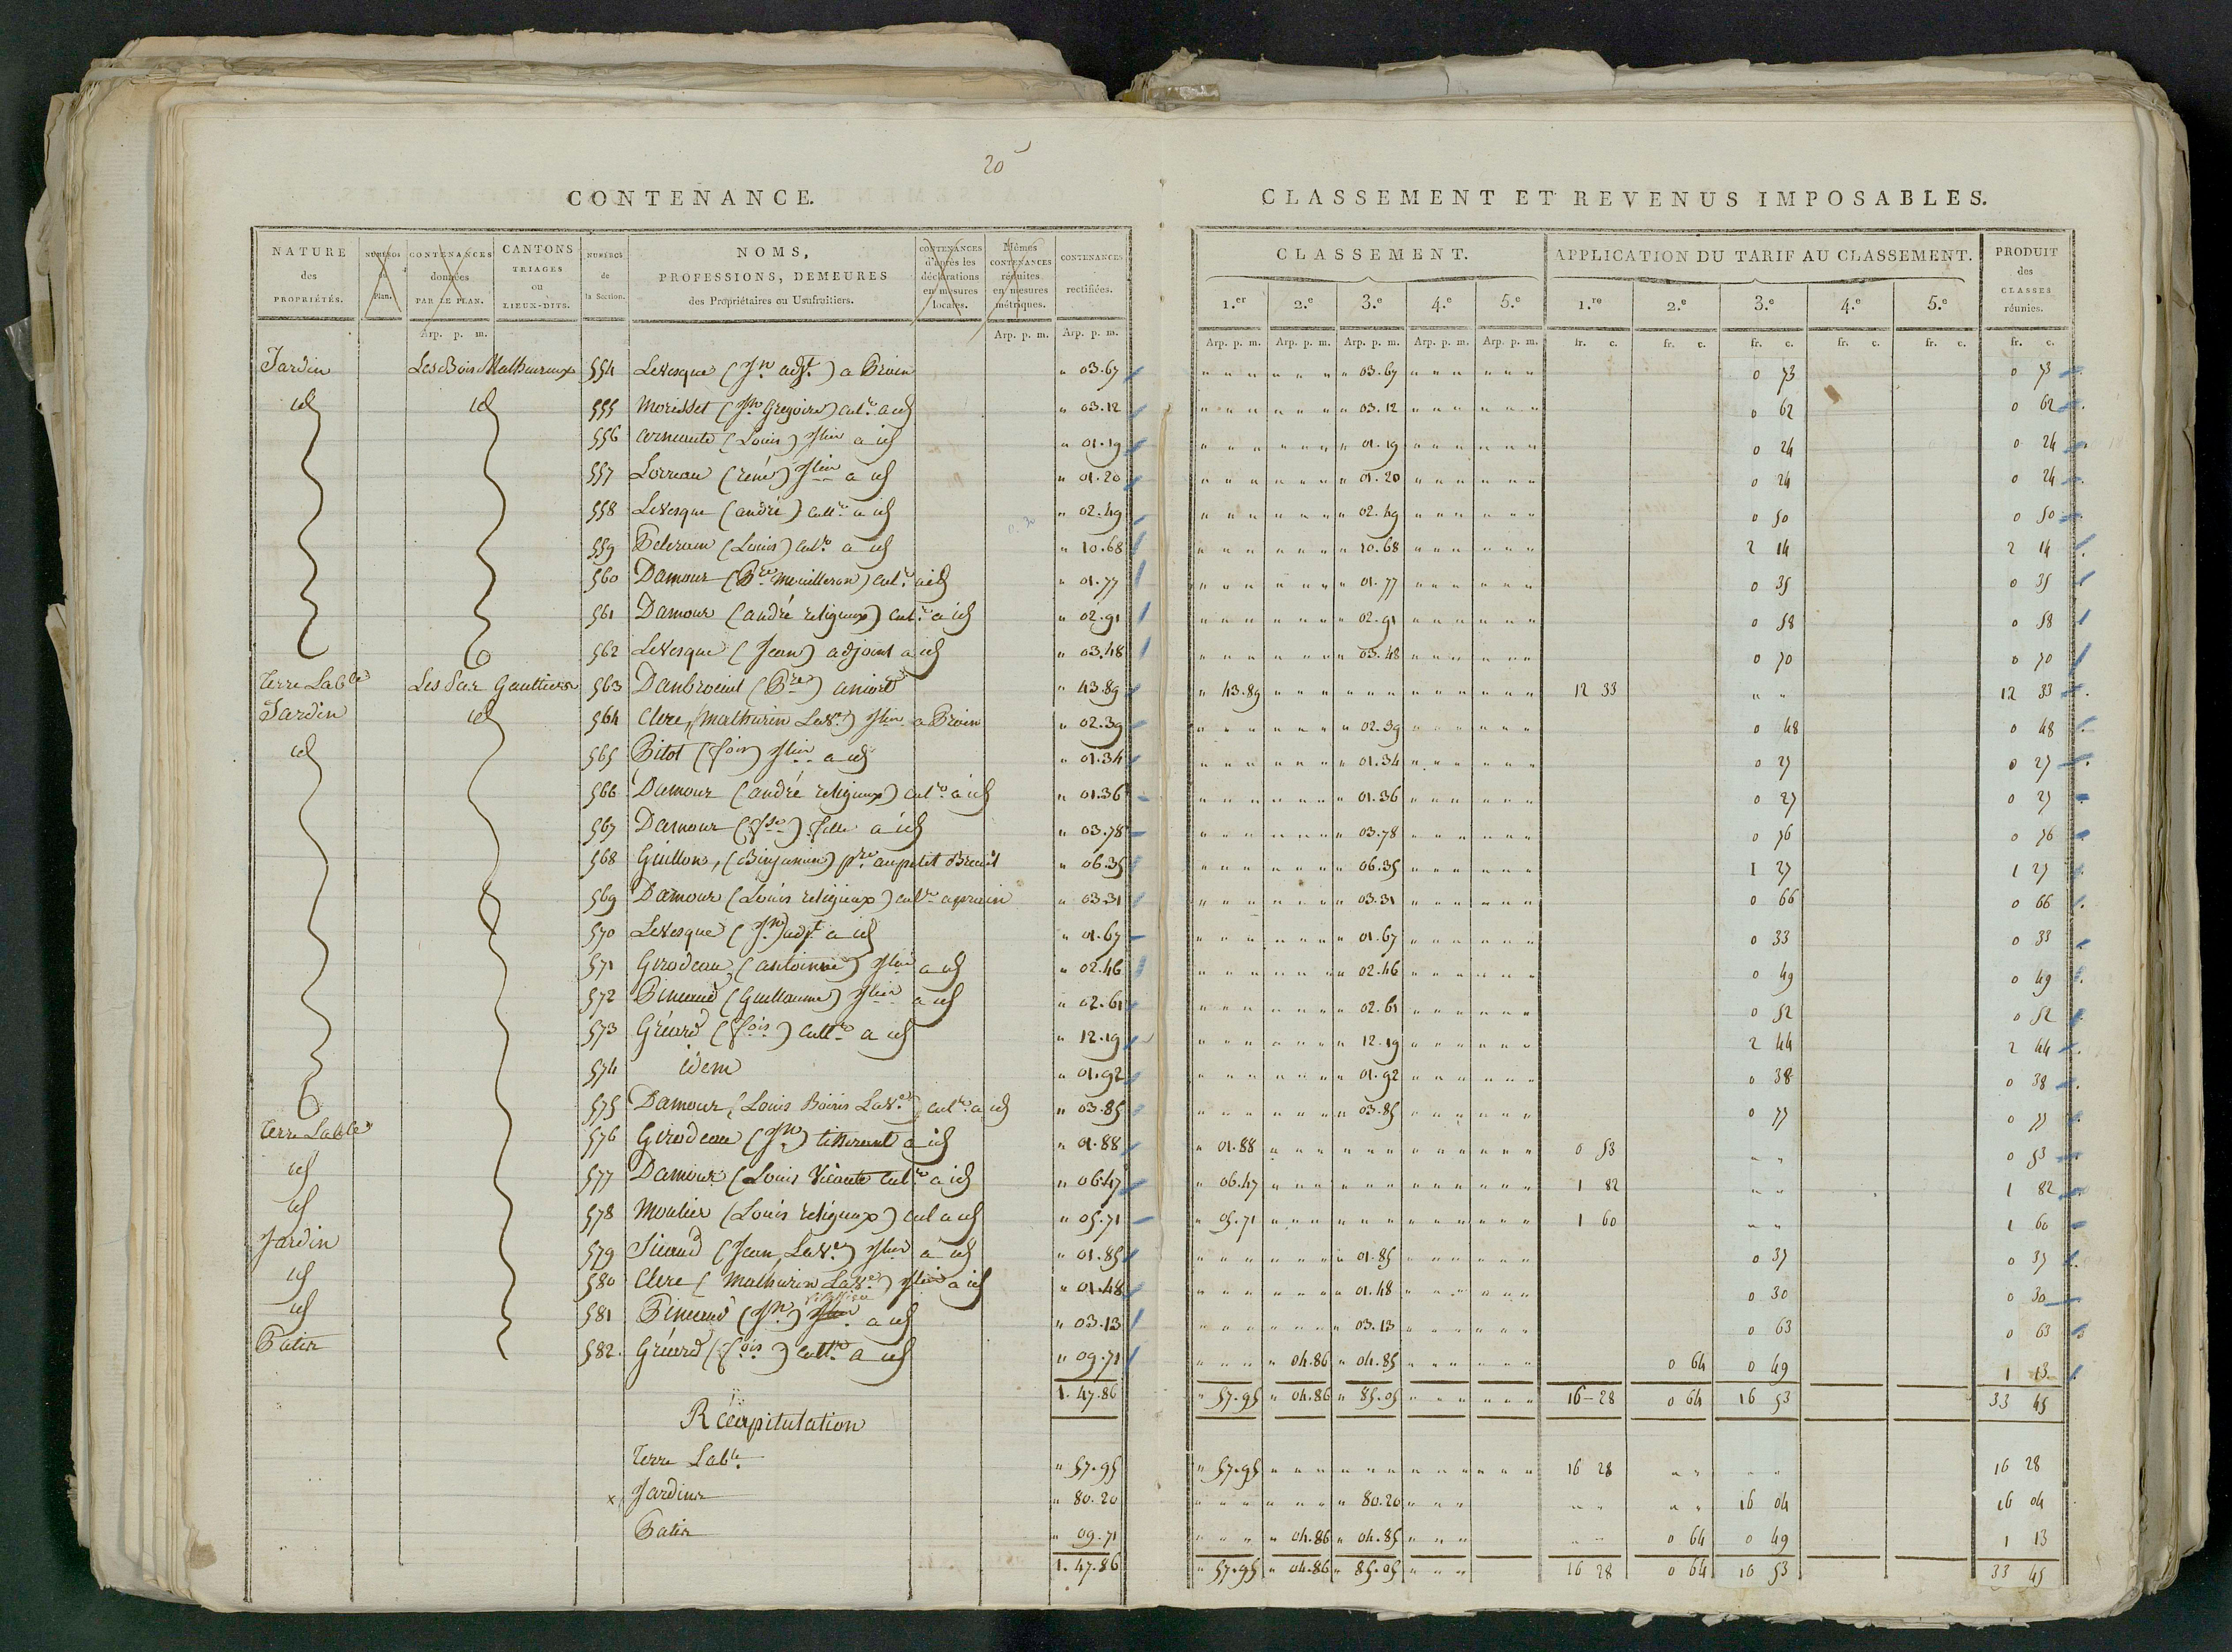 20
CONTENANCE.
CLASSEMENT ET REVENUS IMPOSABLES.
NATURE des PROPRIÉTÉS. | NUMÉROS du Plan. | CONTENANCES données PAR LE PLAN. | CANTONS TRIAGES ou LIEUX-DITS. | NUMÉROS de la Section. | NOMS, PROFESSIONS, DEMEURES des Propriétaires ou Usufruitiers. | CONTENANCES d'après les déclarations en mesures locales. | Mêmes CONTENANCES réduites en mesures métriques. | CONTENANCES rectifiées.
CLASSEMENT. | APPLICATION DU TARIF AU CLASSEMENT. | PRODUIT des CLASSES réunies.
1.er 2.e 3.e 4.e 5.e | 1.re 2.e 3.e 4.e 5.e
Arp. p. m. | Arp. p. m. | Arp. p. m. | Arp. p. m. | Arp. p. m. | Arp. p. m. | Arp. p. m. | Arp. p. m. | fr. c. | fr. c. | fr. c. | fr. c. | fr. c. | fr. c.
Jardin Les Bois Malheureux 554 Levesque (Jn adjt.) a Prein " 03.67 | " 03.67 | 0 73 | 0 73
id id 555 Morisset (Jn Gregoire) culr. a id " 03.12 | " 03.12 | 0 62 | 0 62
556 (Louis) Jlier a id " 01.19 | " 01.19 | 0 24 | 0 24
557 Lorreau (rené) Jlier a id " 01.20 | " 01.20 | 0 24 | 0 24
558 Levesque (andré) cultr. a id " 02.49 | " 02.49 | 0 50 | 0 50
559 (Louis) culr. a id " 10.68 | " 10.68 | 2 14 | 2 14
560 Damour (Pre Mouilleron) culr. a id " 01.77 | " 01.77 | 0 35 | 0 35
561 Damour (andré religieux) culr. a id " 02.91 | " 02.91 | 0 58 | 0 58
562 Levesque (Jean) adjoint a id " 03.48 | " 03.48 | 0 70 | 0 70
Terre Lable Les Gaultiers 563 (Pre) a niort " 43.89 | " 43.89 | 12 33 | " " | 12 33
Jardin id 564 Clere, (Mathurin Lave.) Jlier a Prein " 02.39 | " 02.39 | 0 48 | 0 48
id 565 Pitot (fois) Jlier a id " 01.34 | " 01.34 | 0 27 | 0 27
566 Damour (andré religieux) culr. a id " 01.36 | " 01.36 | 0 27 | 0 27
567 Damour (fse) fille a id " 03.78 | " 03.78 | 0 76 | 0 76
568 Guillon, (Binjamin) pre. au petit Breuil " 06.35 | " 06.35 | 1 27 | 1 27
569 Damour (Louis religieux) culr. a prein " 03.31 | " 03.31 | 0 66 | 0 66
570 Levesque (Jn) adjt a id " 01.67 | " 01.67 | 0 33 | 0 33
571 Girodeau, (antoinne) Jlier a id " 02.46 | " 02.46 | 0 49 | 0 49
572 (Guillaume) Jlier a id " 02.61 | " 02.61 | 0 52 | 0 52
573 (fois) cultr. a id " 12.19 | " 12.19 | 2 44 | 2 44
574 idem " 01.92 | " 01.92 | 0 38 | 0 38
575 Damour, (Louis Lave.) culr. a id " 03.85 | " 03.85 | 0 77 | 0 77
Terre Lable 576 Girodeau (Jn) tisserent a id " 01.88 | " 01.88 | 0 53 | " " | 0 53
id 577 Damour (Louis culr. a id " 06.47 | " 06.47 | 1 82 | " " | 1 82
id 578 Moulier (Louis religieux) cul a id " 05.71 | " 05.71 | 1 60 | " " | 1 60
Jardin 579 Sicaud (Jean Lave.) Jlier a id " 01.85 | " 01.85 | 0 37 | 0 37
id 580 Clere (Mathurin Lave.) Jlier a id " 01.48 | " 01.48 | 0 30 | 0 30
id 581 (Jn) a id " 03.13 | " 03.13 | 0 63 | 0 63
Patis 582. (fois) cultr. a id " 09.71 | " 04.86 | " 04.85 | 0 64 | 0 49 | 1 13
1. 47.86 | " 57.95 | " 04.86 | " 85.05 | 16-28 | 0 64 | 16 53 | 33 45
Récapitulation
Terre Lable. " 57.95 | " 57.95 | 16 28 | " " | " " | 16 28
x Jardins " 80.20 | " 80.20 | " " | " " | 16 04 | 16 04
Patis " 09.71 | " 04.86 | " 04.85 | " " | 0 64 | 0 49 | 1 13
1. 47.86 | " 57.95 | " 04.86 | " 85.05 | 16 28 | 0 64 | 16 53 | 33 45